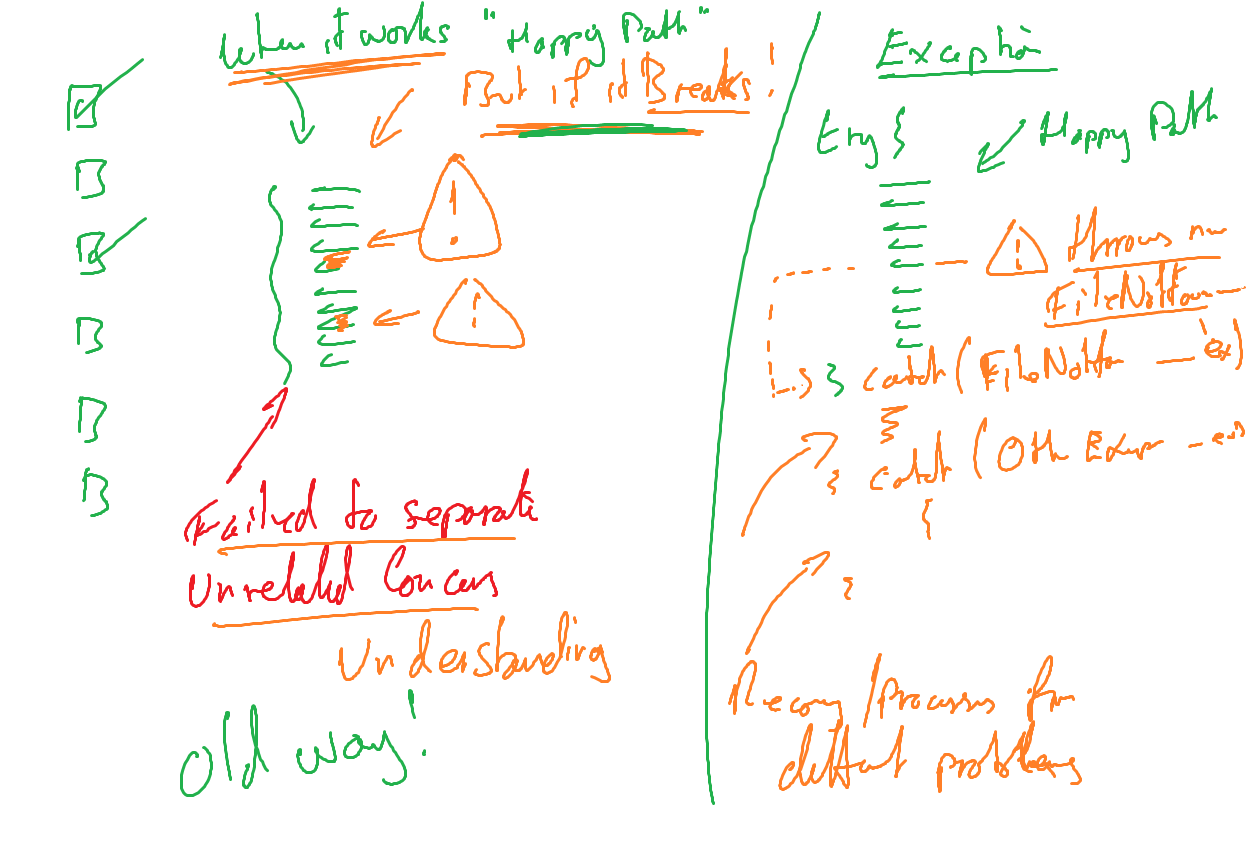 When it works "Happy Path"
But if it Breaks!
Failed to separate
Unrelated Concerns
Understanding
Old way!
Exception
Try {
Happy Path
throws new
FileNotFou—
} catch (FileNotFou — ex)
} catch (Oth Excep — ex)
{
}
Recovery/processes for
different problems